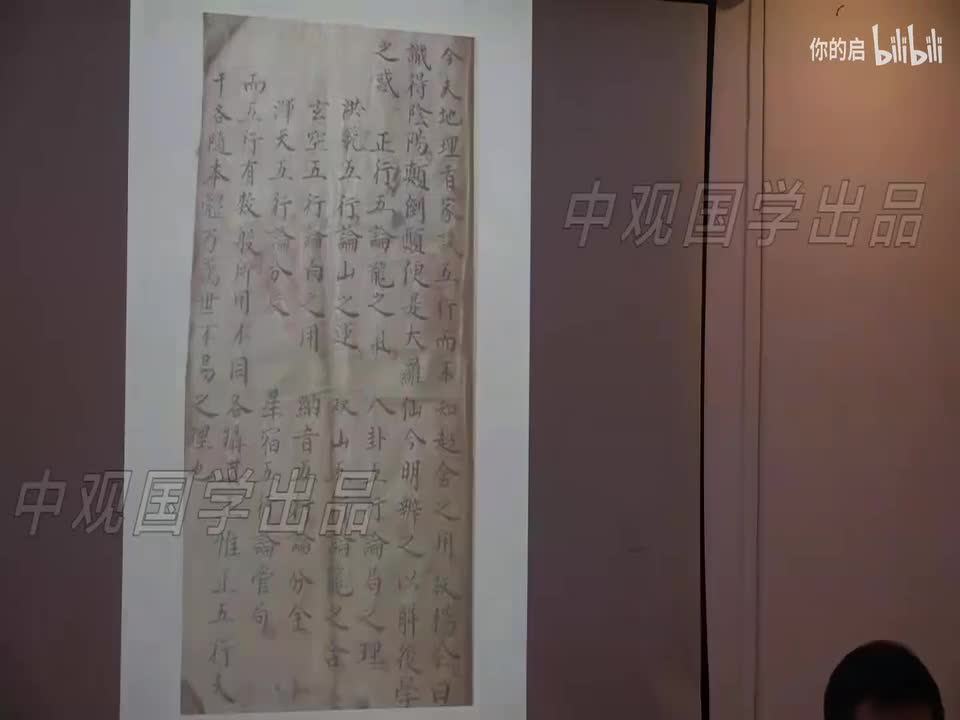 今夫地理百家五行而不知之用故楊公曰
識得陰陽顛倒顛便是大羅仙今明辨之以解後學
之惑 正行五論龍之 八卦五行論局之理
洪範五行論山之運 双山五行論龍之合
玄空五行論向之用 納音五行論分金
渾天五行論分 星宿五行論管
而五行有数般所用不同各惟正五行天
干各隨本乃萬世不易之理也
中观国学出品
中观国学出品
你的启 bilibili